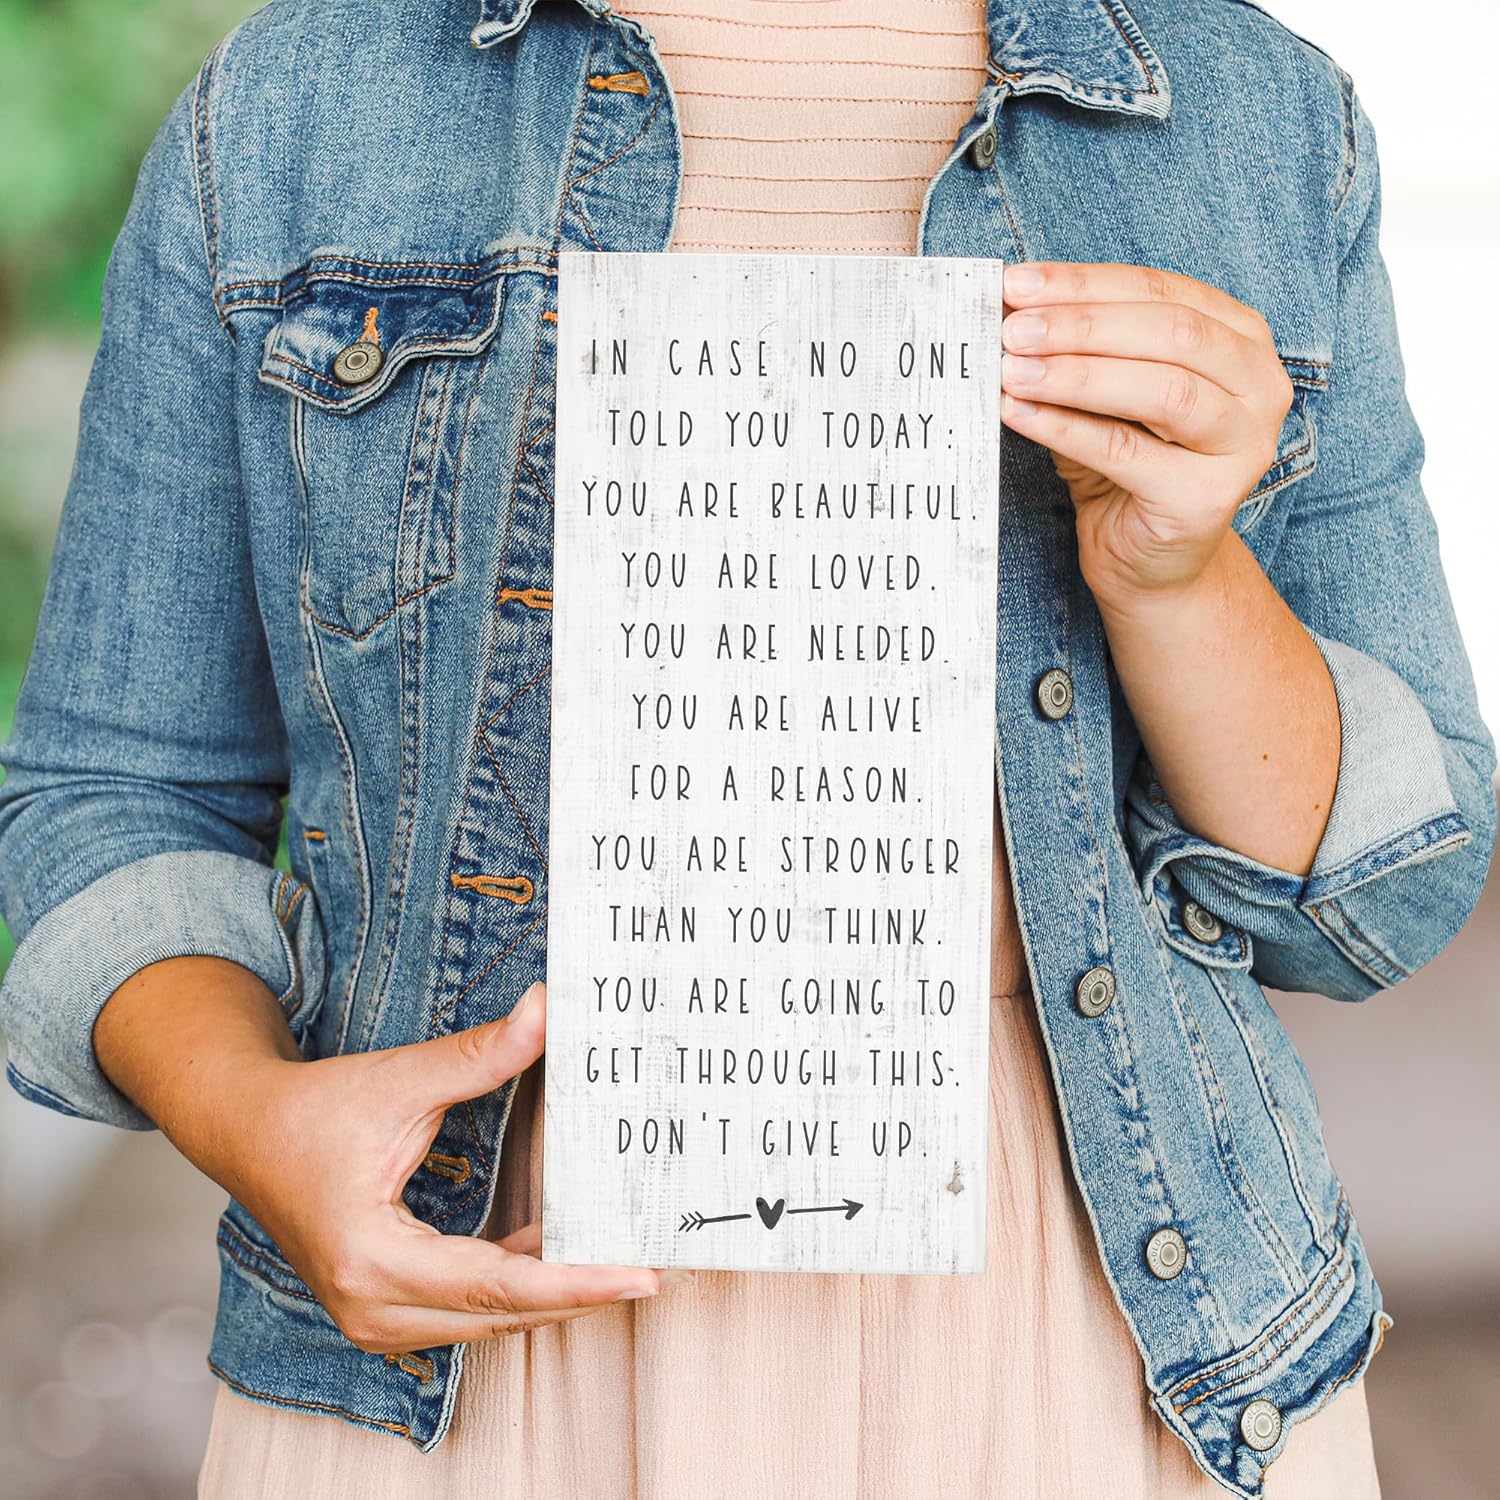 IN CASE NO ONE
TOLD YOU TODAY:
YOU ARE BEAUTIFUL.
YOU ARE LOVED.
YOU ARE NEEDED.
YOU ARE ALIVE
FOR A REASON.
YOU ARE STRONGER
THAN YOU THINK.
YOU ARE GOING TO
GET THROUGH THIS.
DON'T GIVE UP.